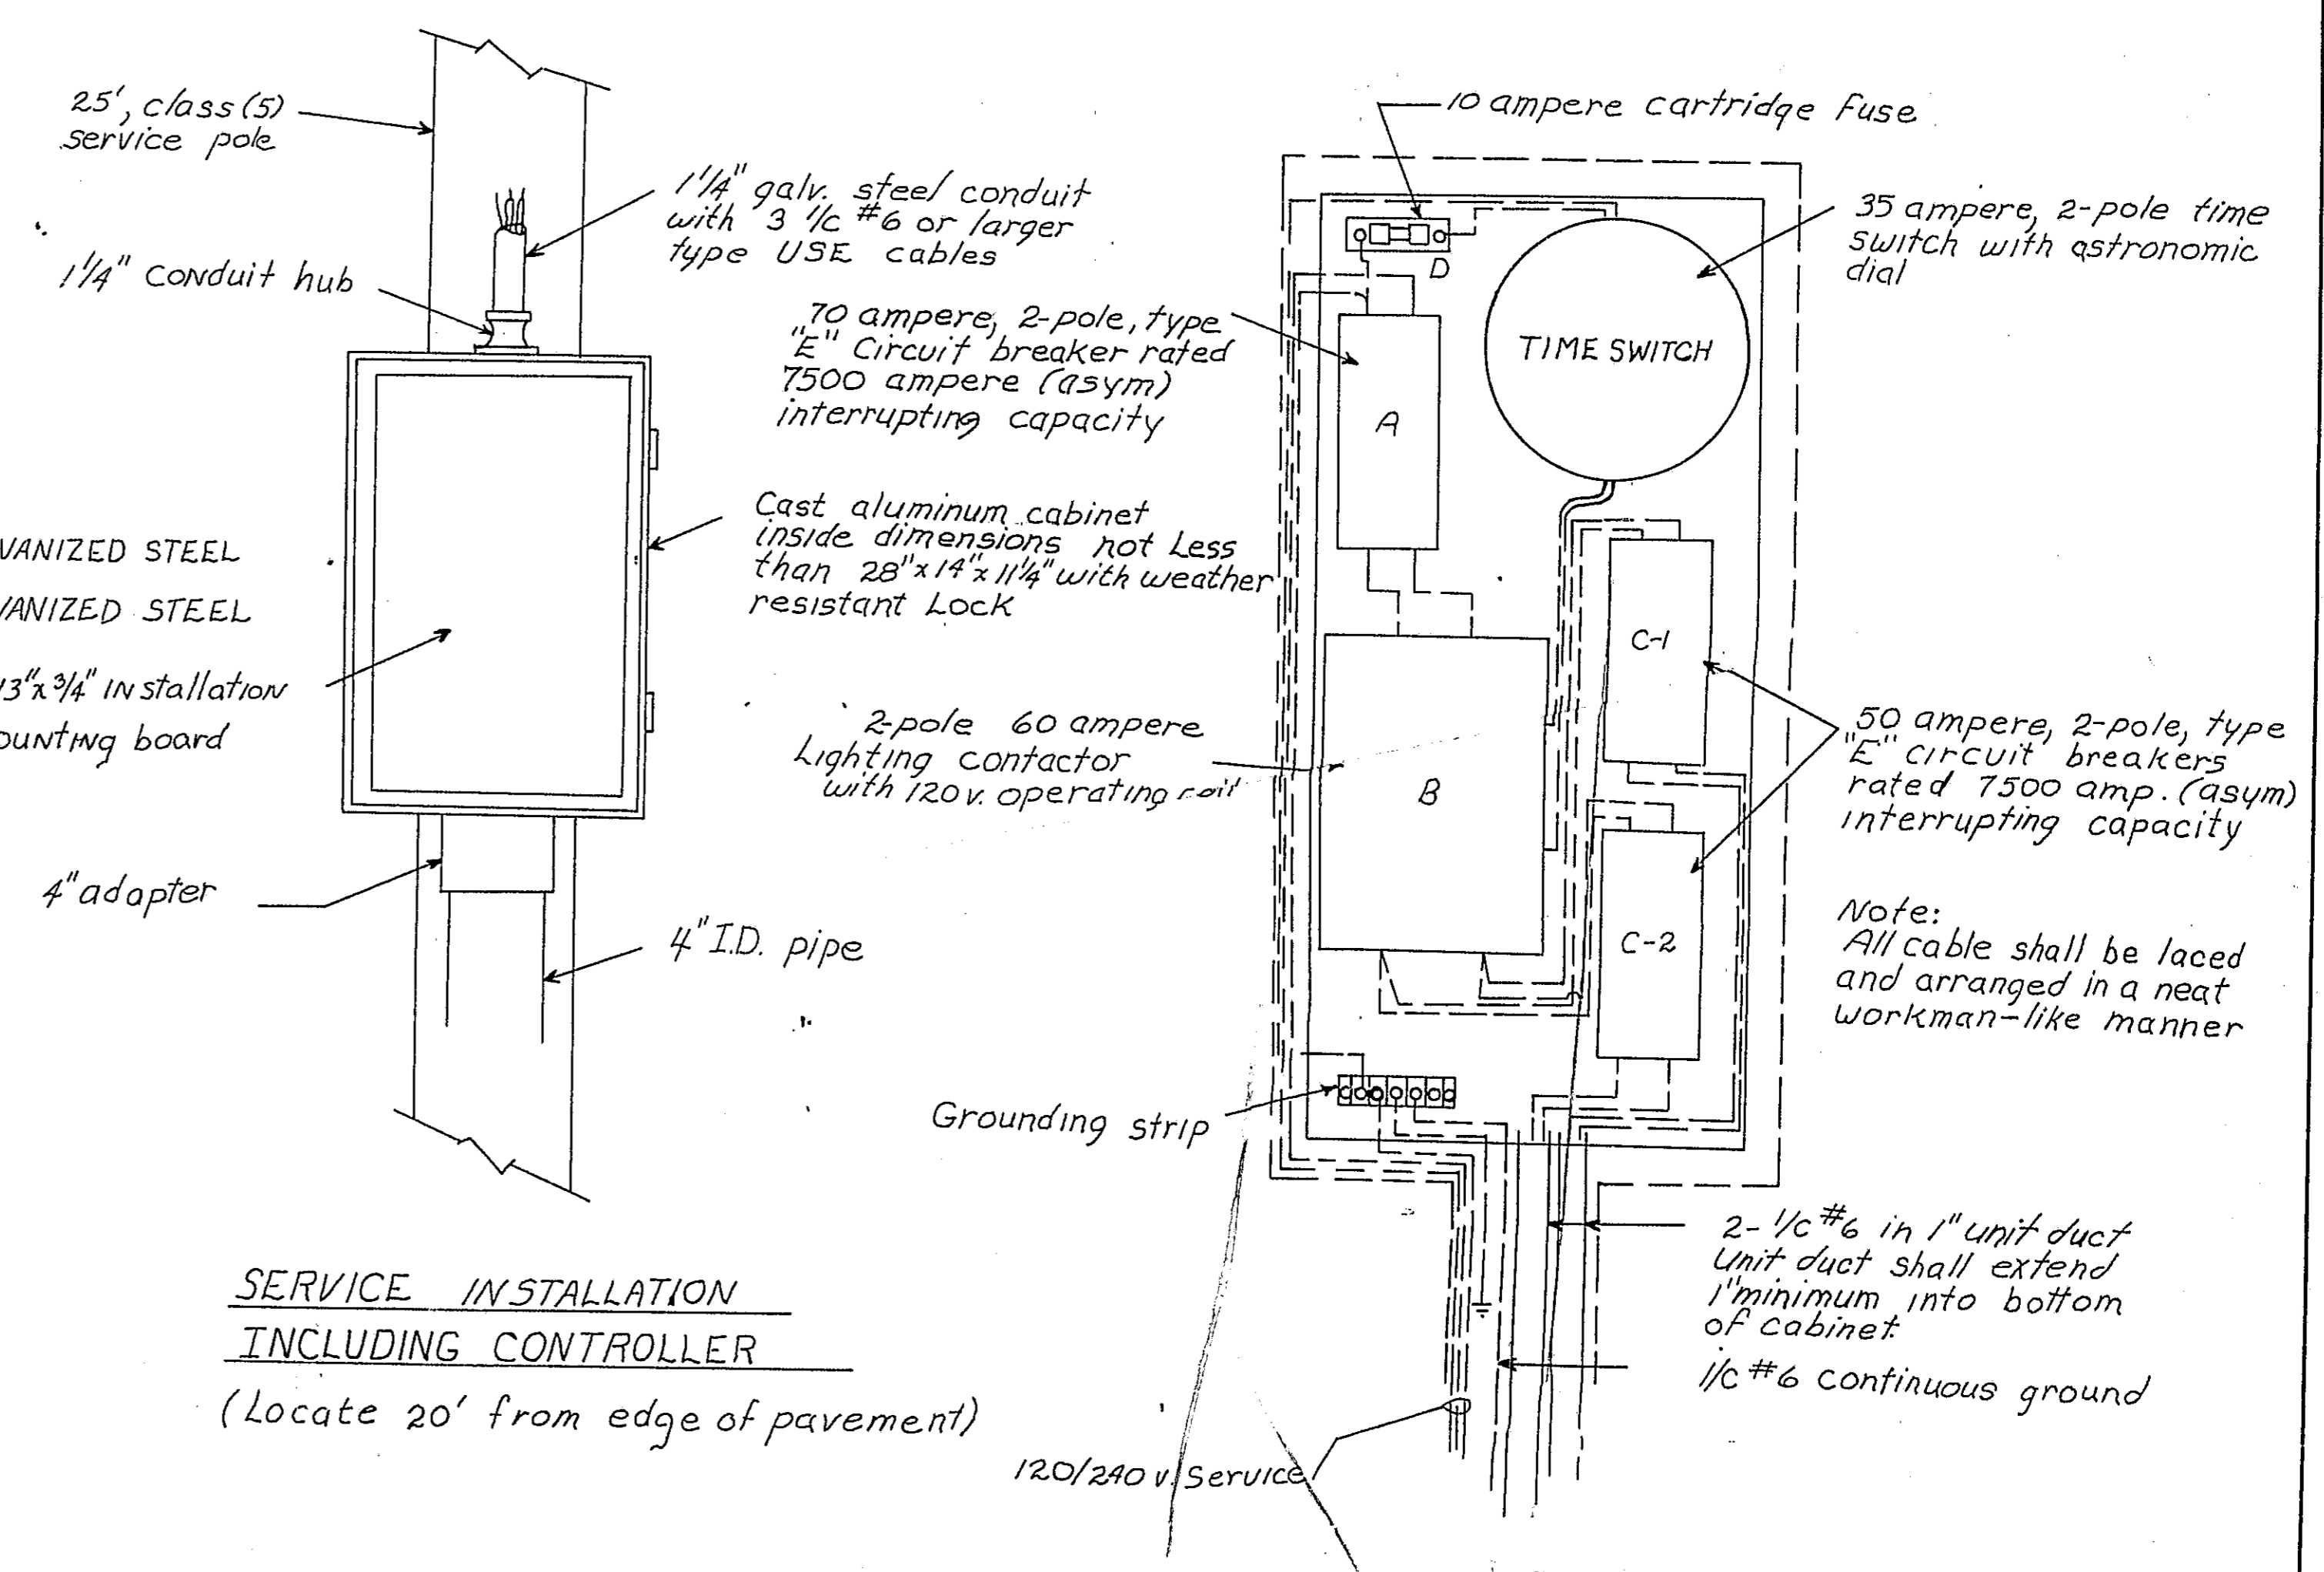 25', class (5)
service pole
1 1/4" conduit hub
1 1/4" galv. steel conduit
with 3 1/c #6 or larger
type USE cables
VANIZED STEEL
VANIZED STEEL
13"x 3/4" Installation
ounting board
Cast aluminum cabinet
inside dimensions not Less
than 28"x 14"x 11 1/4" with weather
resistant Lock
4" adapter
4" I.D. pipe
SERVICE INSTALLATION
INCLUDING CONTROLLER
(Locate 20' from edge of pavement)
10 ampere cartridge fuse
D
35 ampere, 2-pole time
switch with astronomic
dial
TIME SWITCH
70 ampere, 2-pole, type
"E" Circuit breaker rated
7500 ampere (asym)
interrupting capacity
A
C-1
2-pole 60 ampere
Lighting contactor
with 120 v. operating coil
B
50 ampere, 2-pole, type
"E" circuit breakers
rated 7500 amp. (asym)
interrupting capacity
C-2
Note:
All cable shall be laced
and arranged in a neat
workman-like manner
Grounding strip
2- 1/c #6 in 1" unit duct
Unit duct shall extend
1" minimum into bottom
of cabinet.
1/c #6 continuous ground
120/240 v. Service